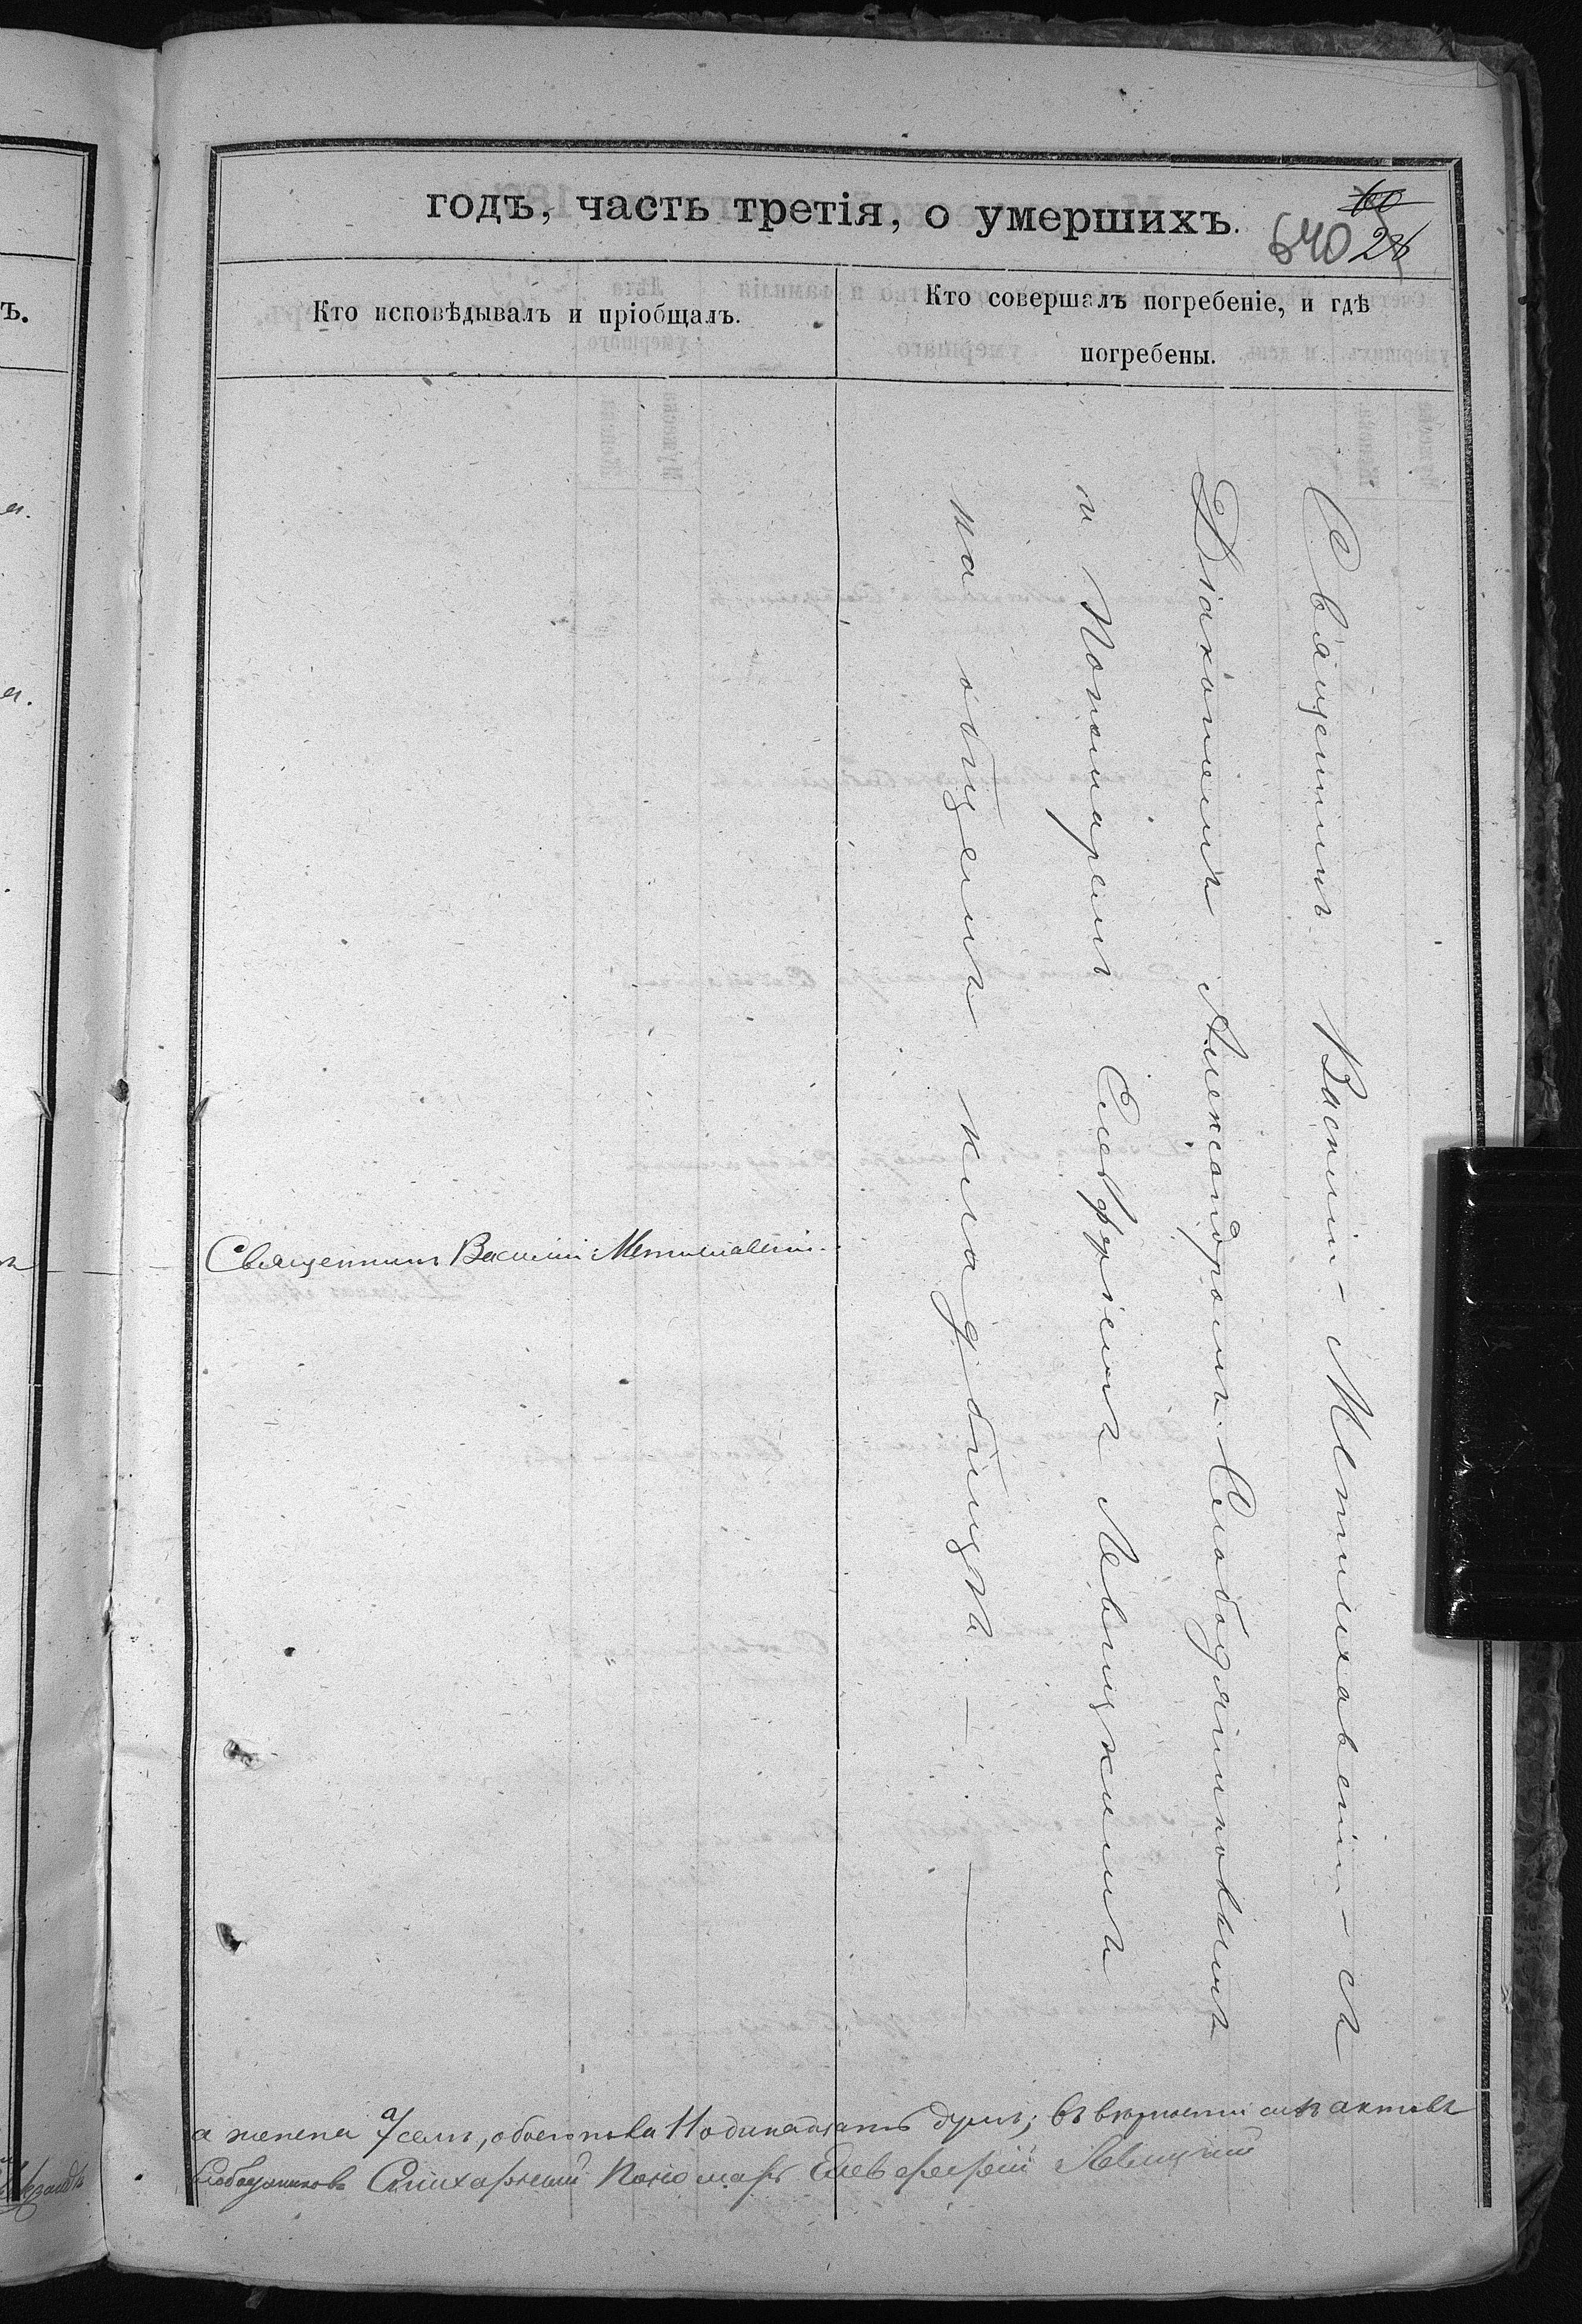 годъ, часть третія, о умершихъ.
100
640 28
Кто исповѣдывалъ и пріобщалъ.
Кто совершалъ погребеніе, и гдѣ
погребены.
Священникъ Василій Метиславскій съ
Діакономъ Александромъ Слободяниковымъ
и Пономаремъ Елевферіемъ Левицкимъ
на общемъ кладбищѣ.
Священникъ Василій Метиславскій.
а женска 7 семь, обоего пола 11 одинадцать душъ; въ вѣрности сихъ актовъ
Слободяниковъ Стихарный Пономарь Елевферій Левицкій